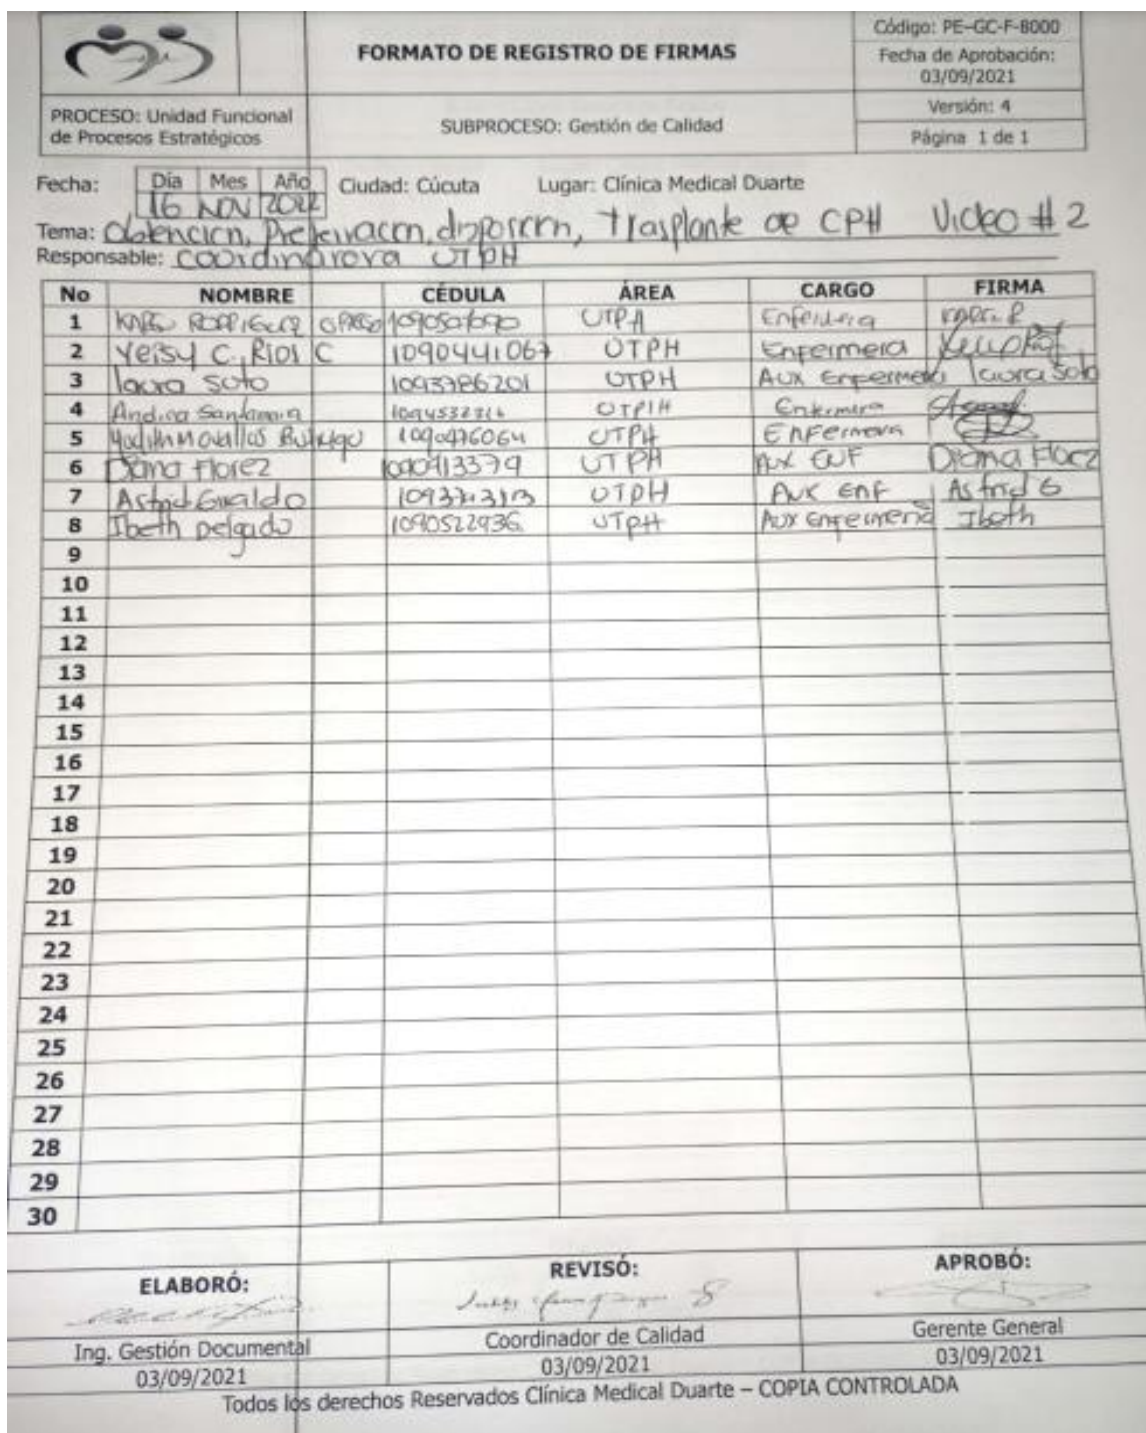 FORMATO DE REGISTRO DE FIRMAS
Código: PE-GC-F-8000
Fecha de Aprobación:
03/09/2021
PROCESO: Unidad Funcional
de Procesos Estratégicos
SUBPROCESO: Gestión de Calidad
Versión: 4
Página 1 de 1
Fecha: Día Mes Año Ciudad: Cúcuta Lugar: Clínica Medical Duarte
16 NOV 2022
Tema: Obtencion, Preservacion, disposicion, Trasplante de CPH Video #2
Responsable: coordinadora UTPH
No NOMBRE CÉDULA ÁREA CARGO FIRMA
1 UTPH Enfermera
2 Yeisy C. Rios C 1090441067 UTPH Enfermera
3 laura soto 1093786201 UTPH Aux Enfermera laura soto
4 Andrea Santamaria UTPH Enfermera
5 1090476064 UTPH Enfermera
6 Diana Florez UTPH Aux ENF Diana Florez
7 Astrid Giraldo UTPH Aux Enf Astrid G
8 Ibeth Delgado 1090522936 UTPH Aux Enfermeria Ibeth
9
10
11
12
13
14
15
16
17
18
19
20
21
22
23
24
25
26
27
28
29
30
ELABORÓ: REVISÓ: APROBÓ:
Ing. Gestión Documental Coordinador de Calidad Gerente General
03/09/2021 03/09/2021 03/09/2021
Todos los derechos Reservados Clínica Medical Duarte – COPIA CONTROLADA